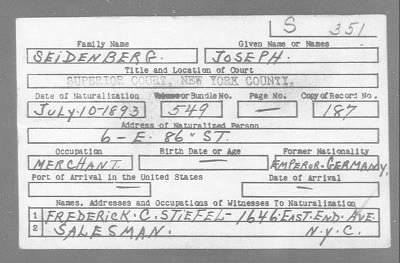 S 351
Family Name Given Name or Names
SEIDENBERG. JOSEPH.
Title and Location of Court
SUPERIOR COURT, NEW YORK COUNTY.
Date of Naturalization Volume or Bundle No. Page No. Copy of Record No.
JULY-10-1893 549 — 187
Address of Naturalized Person
6 - E. 86" ST.
Occupation Birth Date or Age Former Nationality
MERCHANT. — EMPEROR-GERMANY.
Port of Arrival in the United States Date of Arrival
— —
Names, Addresses and Occupations of Witnesses To Naturalization
1 FREDERICK. C. STIEFEL- 1646. EAST. END. AVE.
2 SALESMAN. N.Y.C.